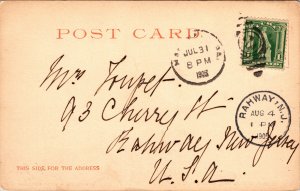 POST CARD
JUL 31
8 PM
1905
Mrs Toupet
93 Cherry St
Rahway New Jersey
U.S.A.
RAHWAY, N.J.
AUG 4
1 PM
1905
THIS SIDE FOR THE ADDRESS